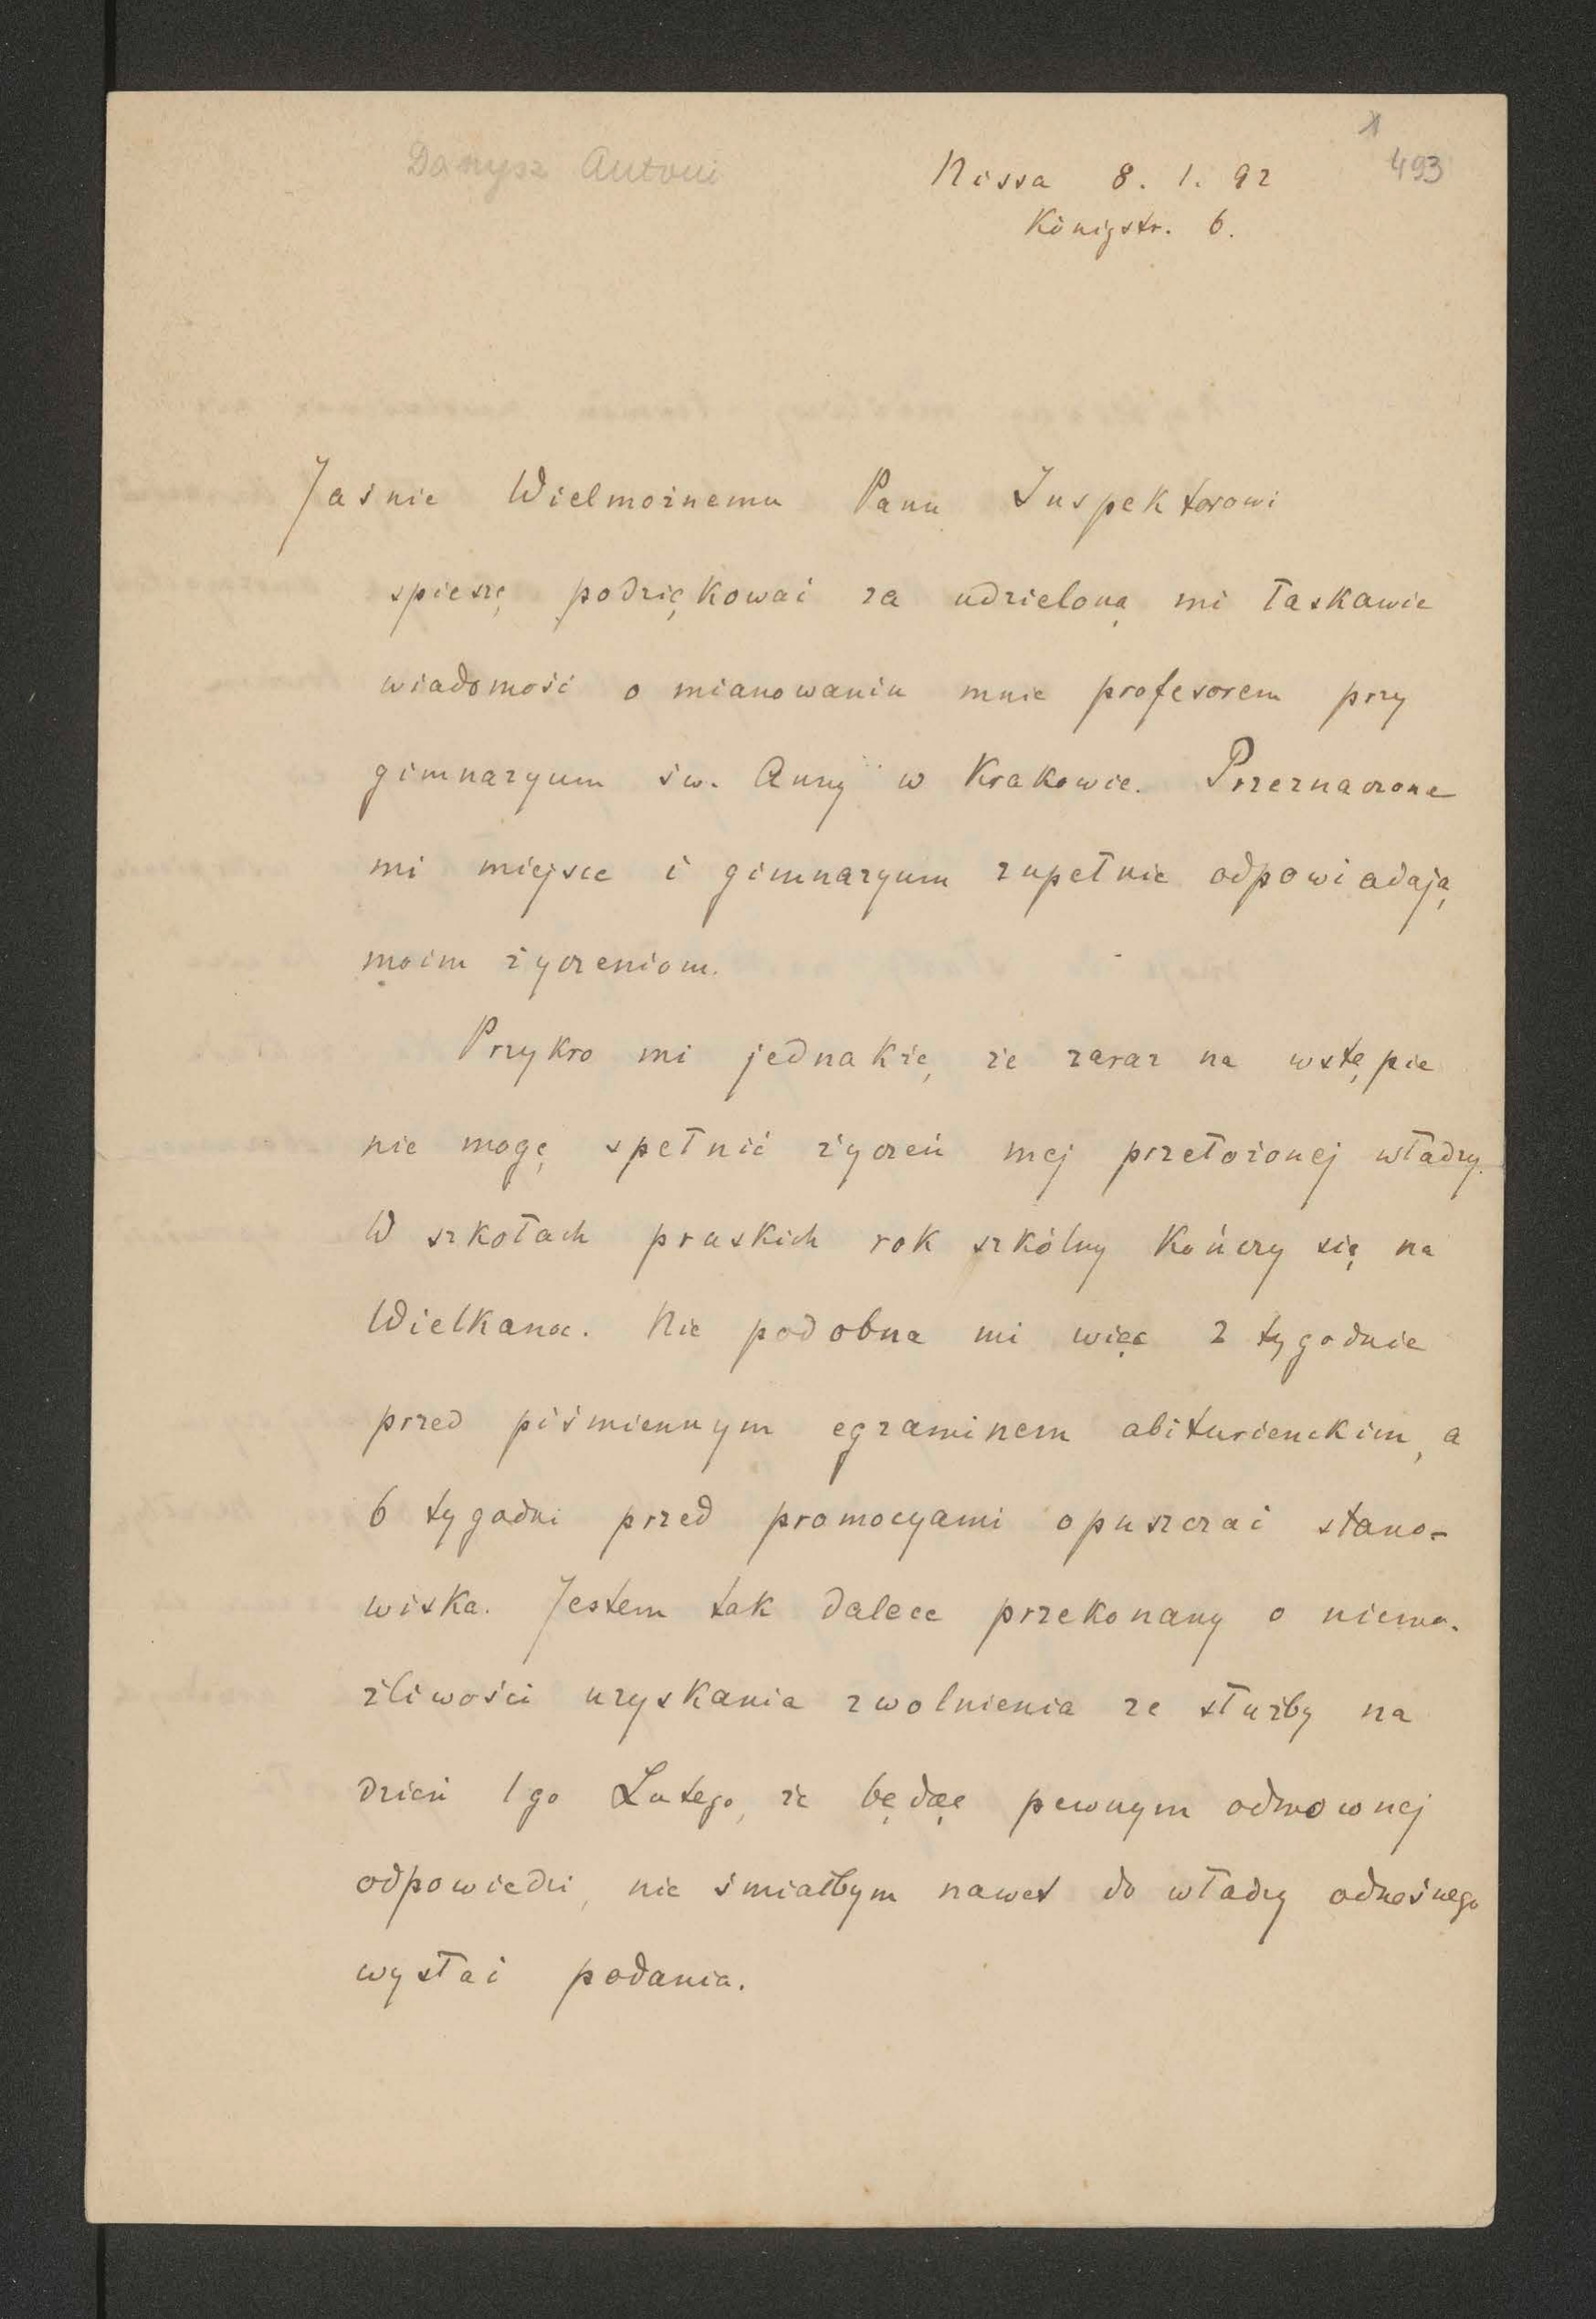 Danysz Antoni
493
Nissa 8. 1. 92
Königstr. 6.
Jaśnie Wielmożnemu Panu Inspektorowi
spieszę podziękować za udzieloną mi łaskawie
wiadomość o mianowaniu mnie profesorem przy
gimnazyum św. Anny w Krakowie. Przeznaczone
mi miejsce i gimnazyum zupełnie odpowiadają
moim życzeniom.
Przykro mi jednakże, że zaraz na wstępie
nie mogę spełnić życzeń mej przełożonej władzy.
W szkołach pruskich rok szkólny kończy się na
Wielkanoc. Nie podobna mi więc 2 tygodnie
przed piśmiennym egzaminem abiturienckim, a
6 tygodni przed promocyami opuszczać stano-
wiska. Jestem tak dalece przekonany o niemo-
żliwości uzyskania zwolnienia ze służby na
dzień 1go Lutego, że będąc pewnym odmownej
odpowiedzi, nie śmiałbym nawet do władzy odnośnego
wysłać podania.